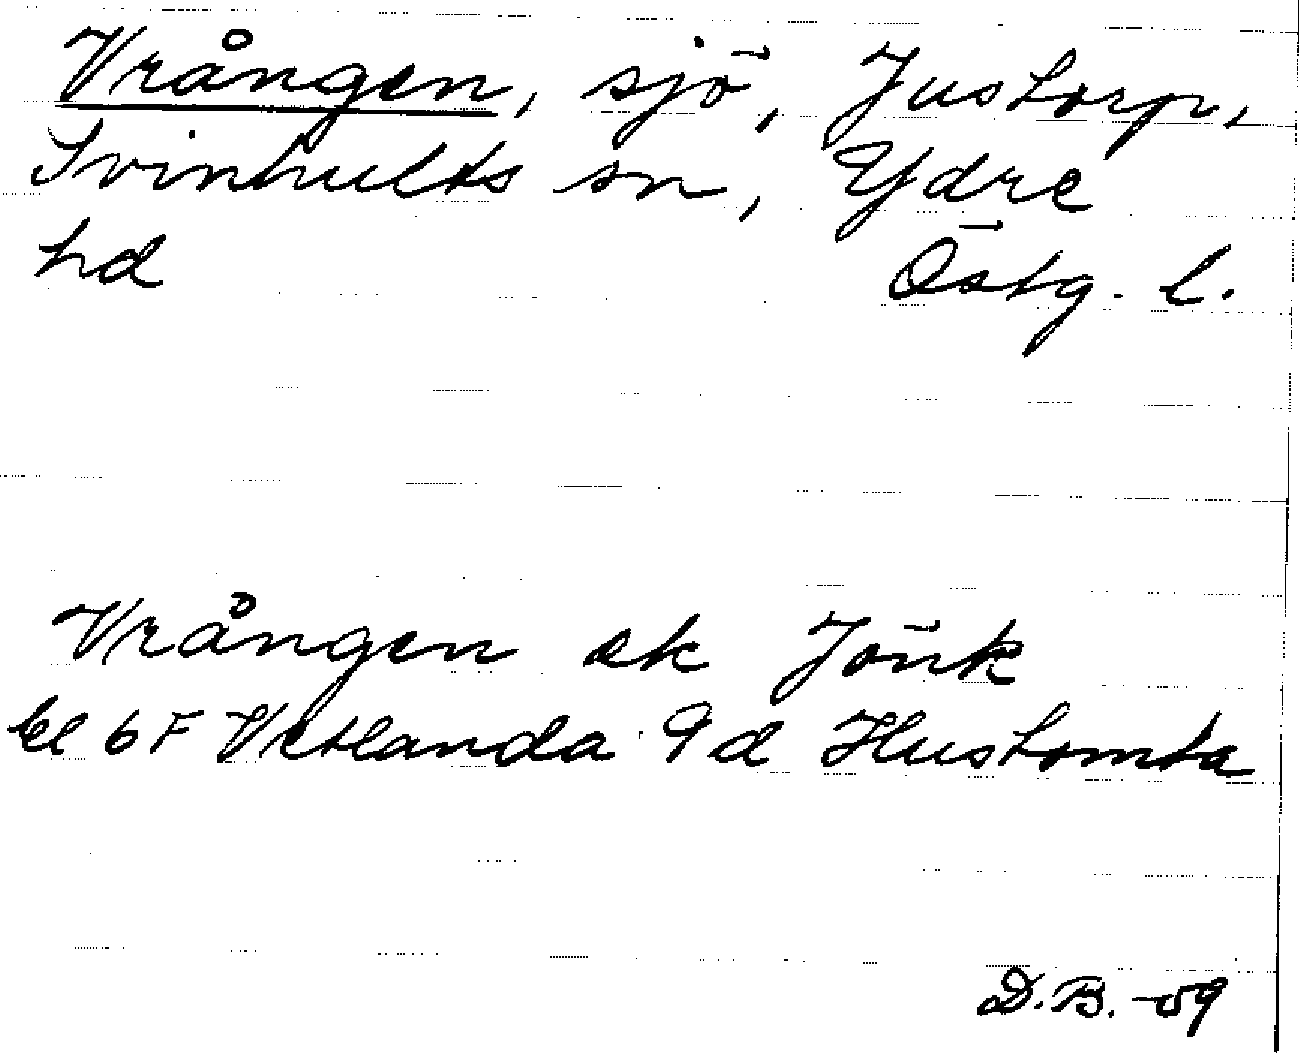 Vrången, sjö, Justorp,
Svinhults sn, Ydre
hd Östg. l.
Vrången ek Jönk
bl 6 F Vetlanda 9d Hustomta
D.B. -59